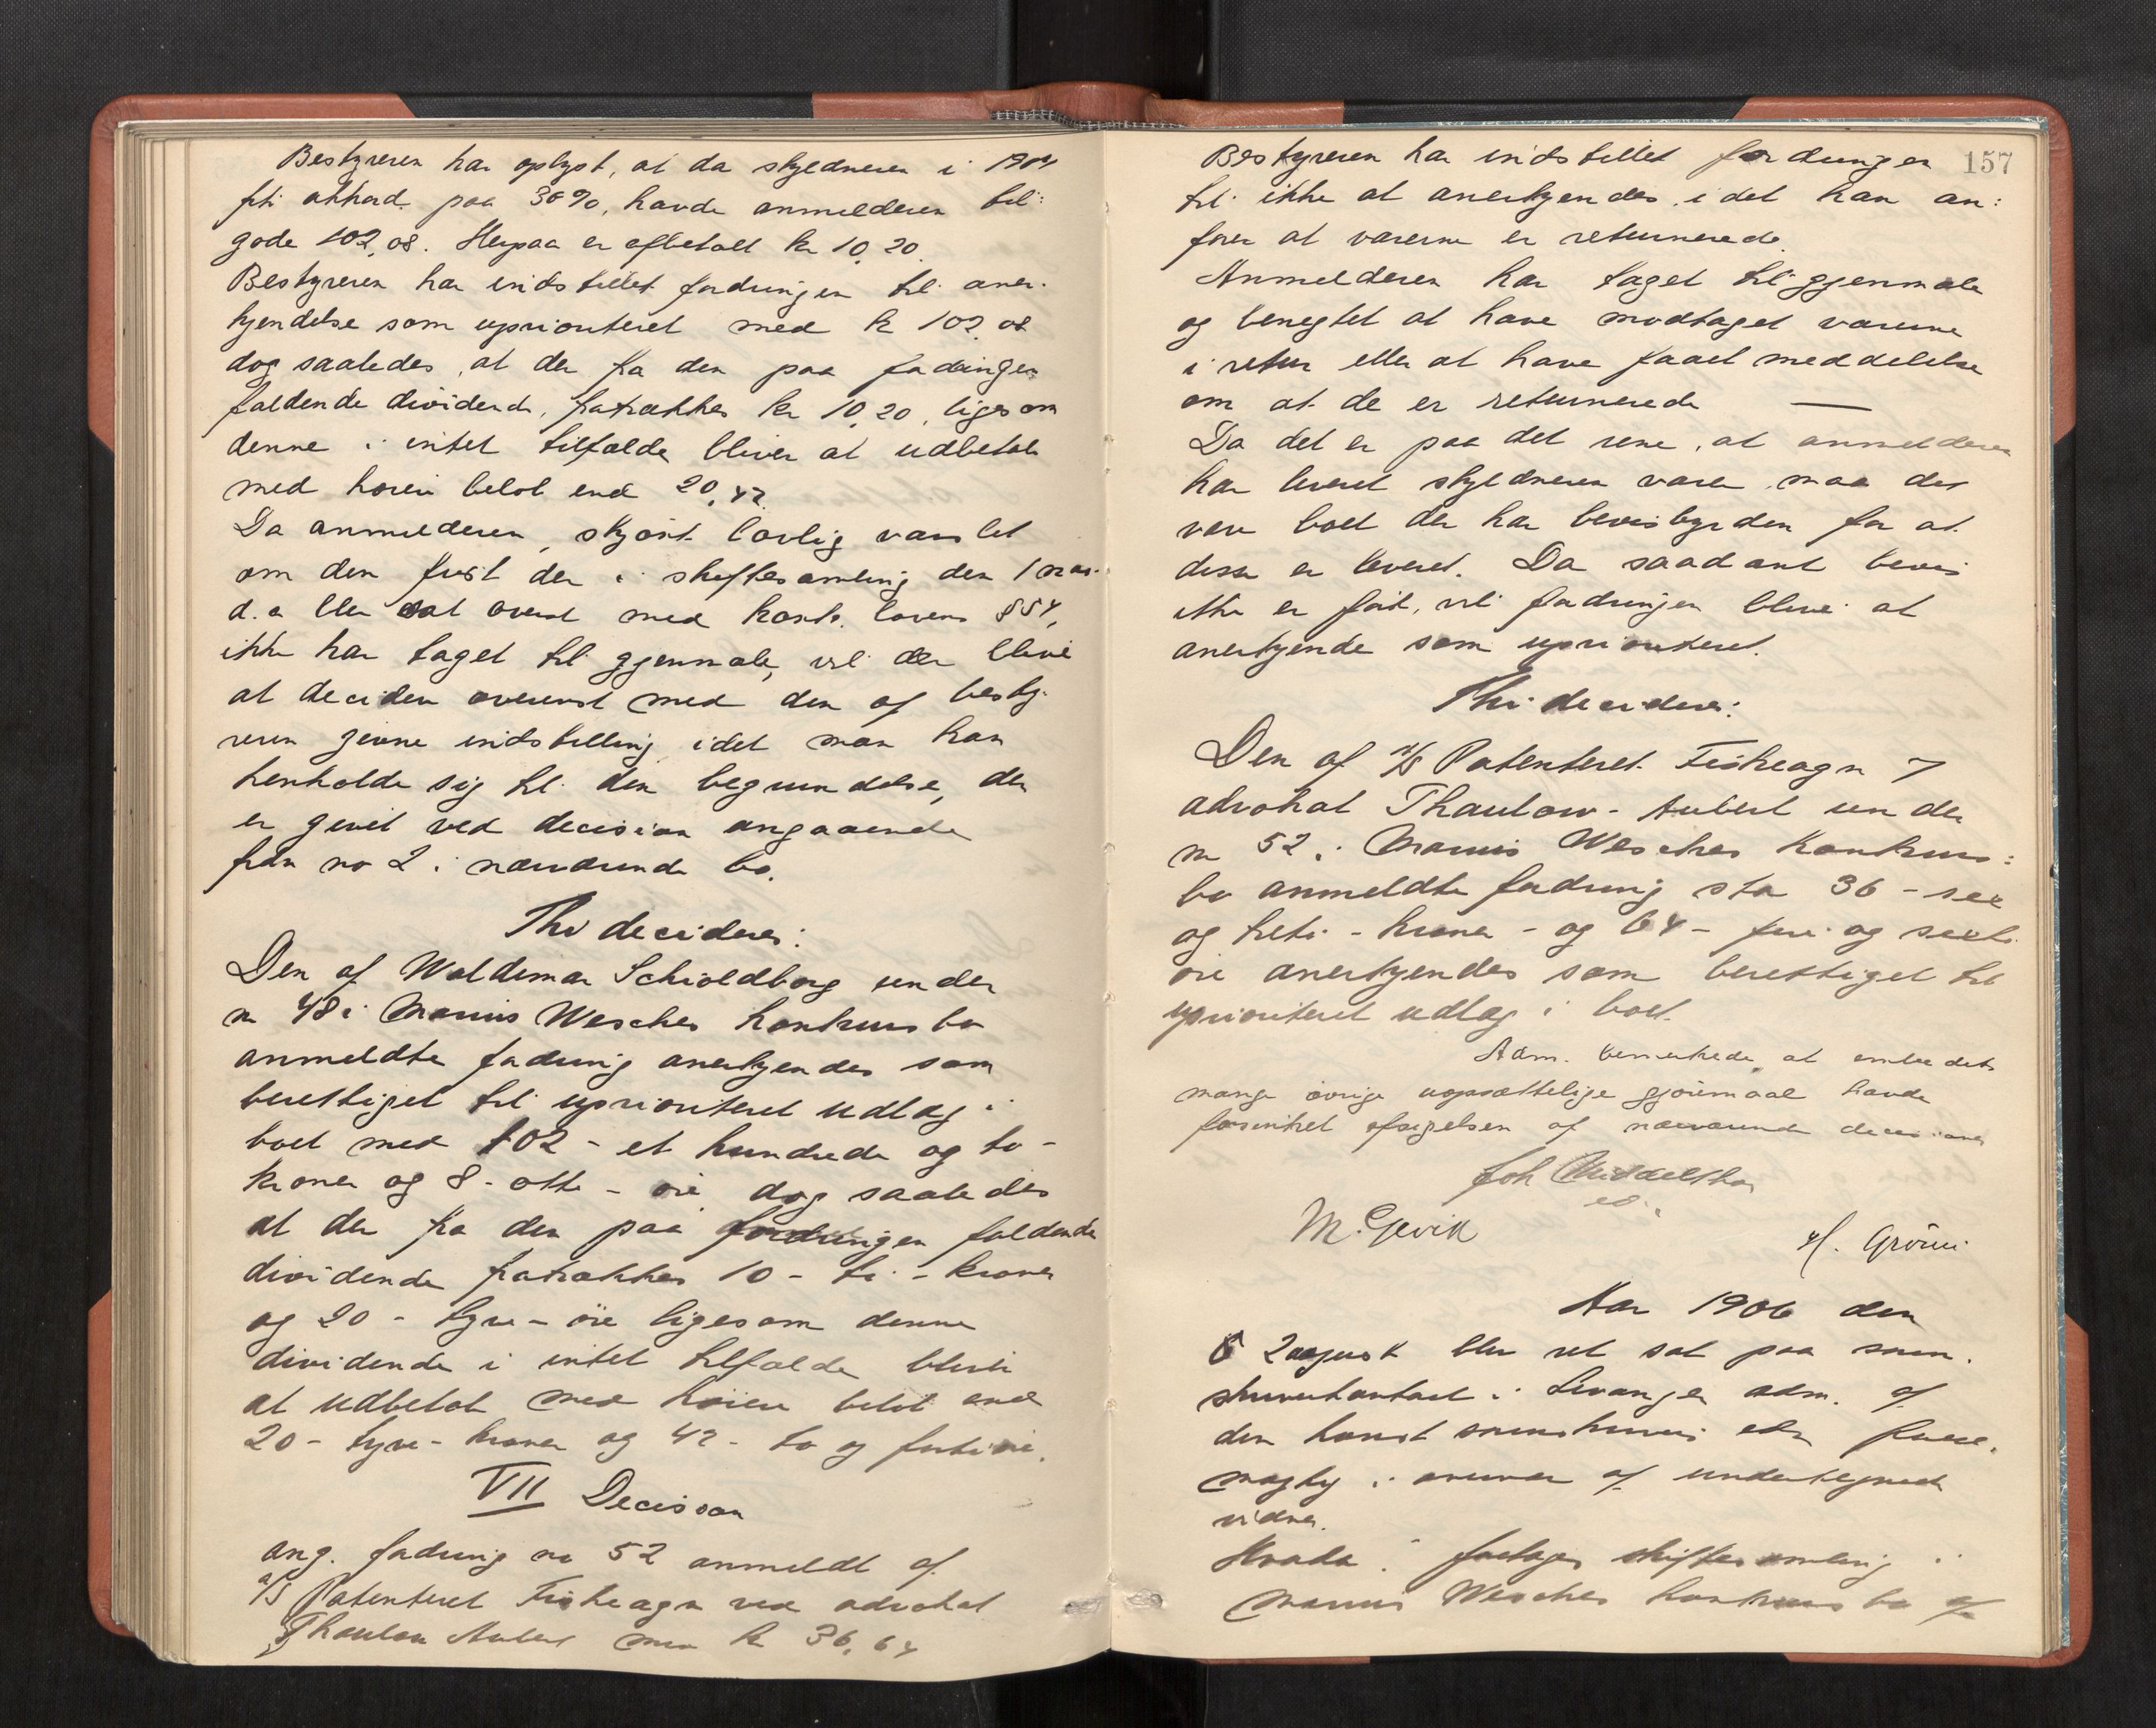 Bestyreren har oplyst, at da skyldneren i 1904
fik akkord paa 30%, havde anmelderen til-
gode 102,08. Herpaa er afbetalt kr 10,20.
Bestyreren har indstillet fordringen til aner-
kjendelse som uprioriteret med kr 102,08
dog saaledes, at der fra den paa fordringen
faldende dividende, fratrækkes kr 10,20, ligesom
denne i intet tilfælde bliver at udbetale
med høiere beløb end 20,42.
Da anmelderen, skjønt lovlig varslet
om den first der i skiftesamling den 1 mai
d.a. blev sat overens med konk. lovens §54,
ikke har taget til gjenmæle, vil der blive
at decidere overenst med den af besty-
reren givne indstilling idet man kan
henholde sig til den begrundelse, der
er givet ved decision angaaende
fordr no 2 i nærværende bo.
Thi decideres:
Den af Waldemar Schioldborg under
no 48 i Marius Wesches konkursbo
anmeldte fordring anerkjendes som
berettiget til uprioriteret udlæg i
boet med 102 - et hundrede og to -
kroner og 8 - otte - øre dog saaledes
at der fra den paa fordringen faldende
dividende fratrækkes 10 - ti - kroner
og 20 - tyve - øre ligesom denne
dividende i intet tilfælde bliver
at udbetale med høiere beløb end
20 - tyve - kroner og 42 - to og firti øre.
VII Decision
ang. fordring no 52 anmeldt af
A/S Patenteret Fiskeagn ved advokat
Thaulow Aubert med kr 36,64
157
Bestyreren har indstillet fordringen
til ikke at anerkjendes, idet han an-
fører at varerne er returnerede.
Anmelderen har taget til gjenmæle
og benegtet at have modtaget varerne
i retur eller at have faaet meddelelse
om at de er returnerede —
Da det er paa det rene, at anmelderen
har leveret skyldneren varer maa det
være boet der har bevisbyrden for at
disse er leveret. Da saadant bevis
ikke er ført, vil fordringen blive at
anerkjende som uprioriteret.
Thi decideres:
Den af A/S Patenteret Fiskeagn v
advokat Thaulow-Aubert under
no 52 i Marius Wesches konkurs-
bo anmeldte fordring stor 36 - sex
og treti - kroner - og 64 - fire og sexti
øre anerkjendes som berettiget til
uprioriteret udlæg i boet.
Adm. bemerkede, at embedets
mange øvrige uopsættelige gjøremaal havde
forsinket afsigelsen af nærværende decisioner
Joh Middelthon
M. Gjevik
H. Grönn
Aar 1906 den
2 august blev ret sat paa soren-
skriverkontoret i Levanger adm. af
den konst sorenskriver efter fuld-
magt i overvær af undertegnede
vidner.
Hvorda foretages skiftesamling i
Marius Wesches konkursbo